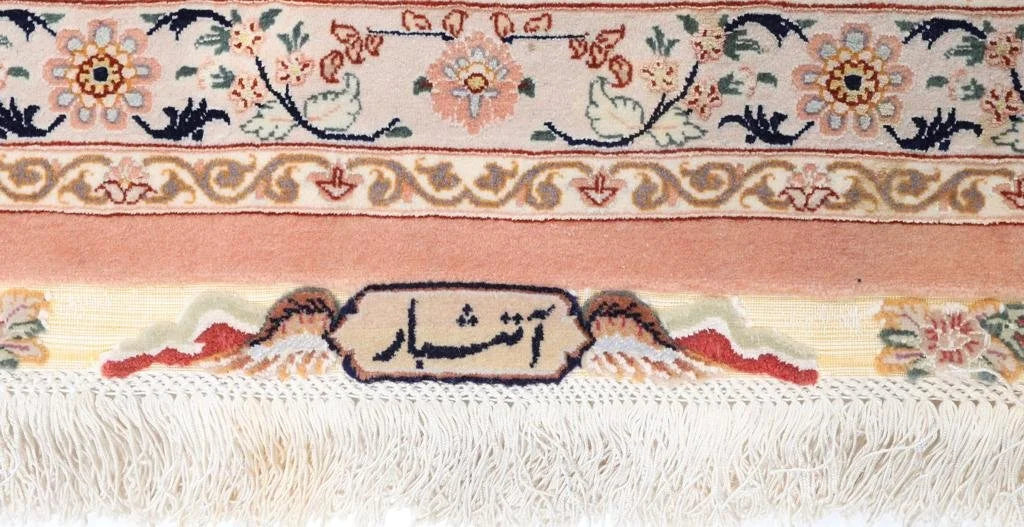 آتشبار